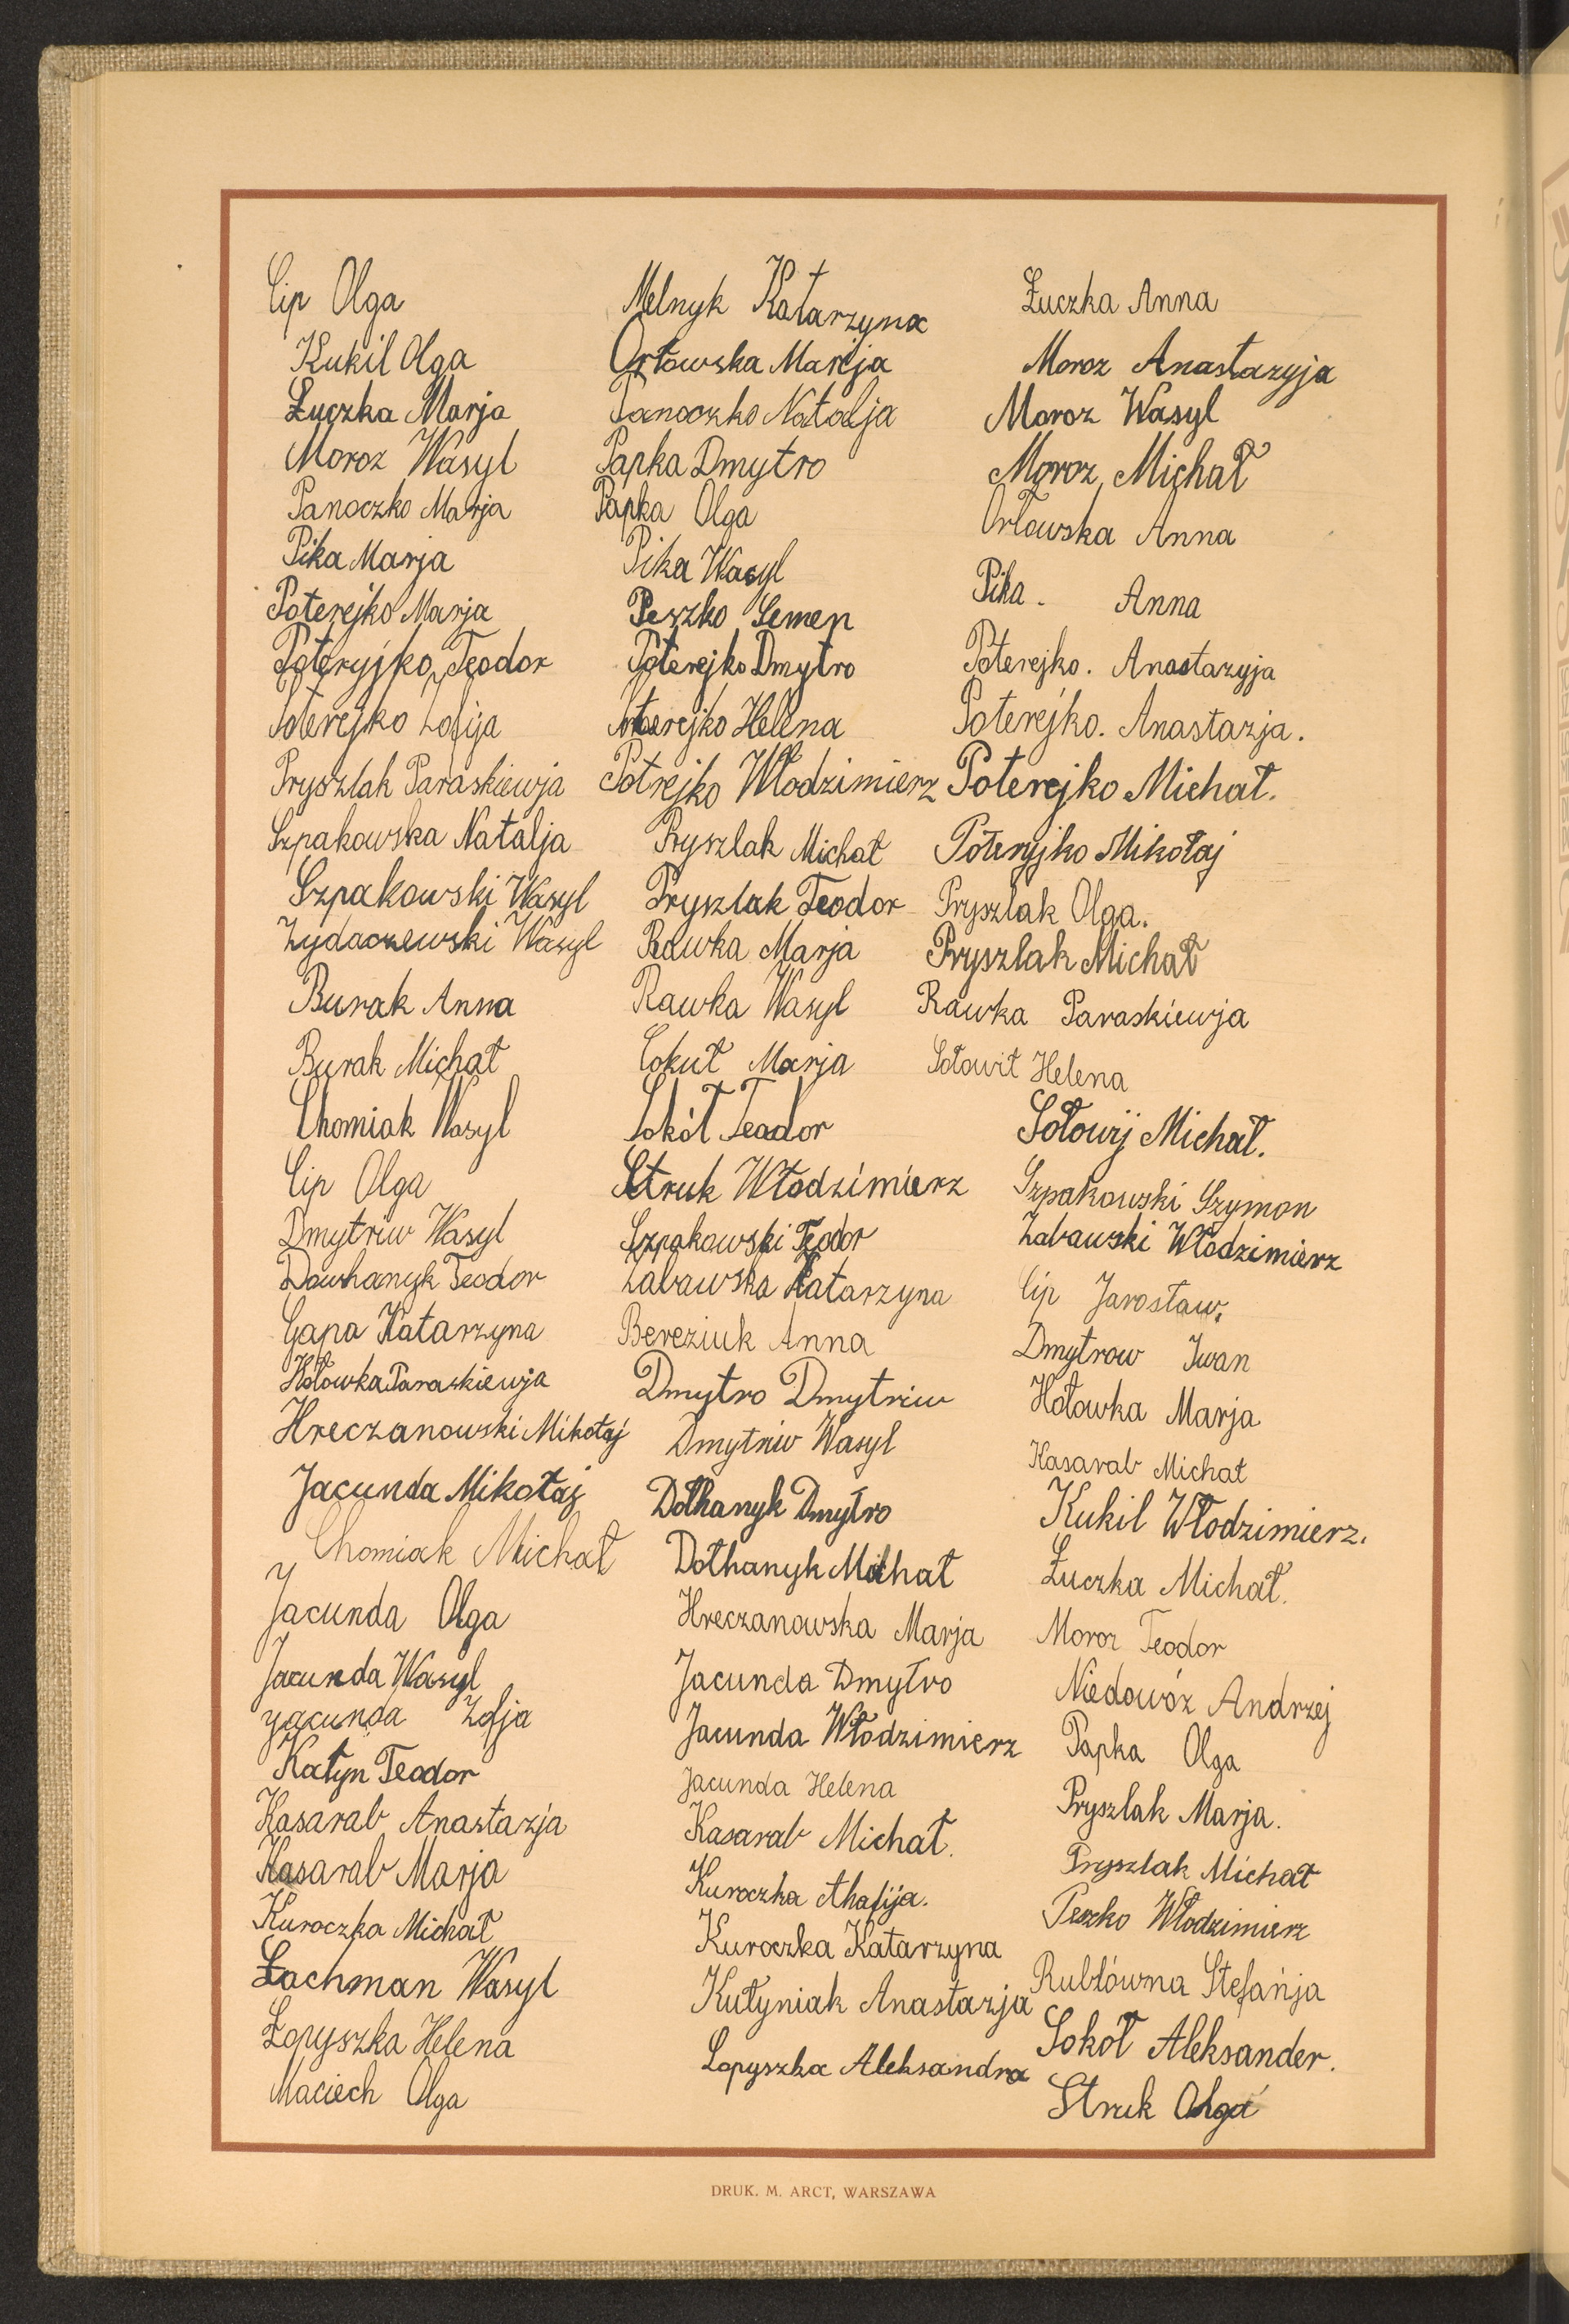 Cip Olga
Kukil Olga
Łuczka Marja
Moroz Wasyl
Panoczko Marja
Pika Marja
Poterejko Marja
Poteryjko Teodor
Poterejko Zofija
Pryszlak Paraskiewja
Szpakowska Natalja
Szpakowski Wasyl
Żydaczewski Wasyl
Burak Anna
Burak Michał
Chomiak Wasyl
Cip Olga
Dmytriw Wasyl
Dowhanyk Teodor
Gapa Katarzyna
Hołowka Paraskiewja
Hreczanowski Mikołaj
Jacunda Mikołaj
Chomiak Michał
Jacunda Olga
Jacunda Wasyl
Jacunda Zofja
Kałyn Teodor
Kasarab Anastazja
Kasarab Marja
Kuroczka Michał
Łachman Wasyl
Łopyszka Helena
Maciech Olga
Melnyk Katarzyna
Orłowska Marija
Panoczko Natalja
Papka Dmytro
Papka Olga
Pika Wasyl
Peszko Semen
Poterejko Dmytro
Poterejko Helena
Potrejko Włodzimierz
Pryszlak Michał
Pryszlak Teodor
Rawka Marja
Rawka Wasyl
Cokut Marja
Sokół Teodor
Struk Włodzimierz
Szpakowski Teodor
Zabawska Katarzyna
Bereziuk Anna
Dmytro Dmytriw
Dmytriw Wasyl
Dołhanyk Dmytro
Dołhanyk Michał
Hreczanowska Marja
Jacunda Dmytro
Jacunda Włodzimierz
Jacunda Helena
Kasarab Michał.
Kuroczka Athafija.
Kuroczka Katarzyna
Kułyniak Anastazja
Łopyszka Aleksandra
Łuczka Anna
Moroz Anastazyja
Moroz Wasyl
Moroz Michał
Orłowska Anna
Pika. Anna
Poterejko. Anastazyja
Poterejko. Anastazja.
Poterejko Michał.
Poteryjko Mikołaj
Pryszlak Olga.
Pryszlak Michał
Rawka Paraskiewja
Sołowit Helena
Sołowij Michał.
Szpakowski Szymon
Zabawski Włodzimierz
Cip Jarosław.
Dmytrow Iwan
Hołowka Marja
Kasarab Michał
Kukil Włodzimierz.
Łuczka Michał.
Moroz Teodor
Niedowóz Andrzej
Papka Olga
Pryszlak Marja.
Pryszlak Michał
Peszko Włodzimierz
Rublówna Stefańja
Sokół Aleksander.
Struk Olga
DRUK. M. ARCT, WARSZAWA